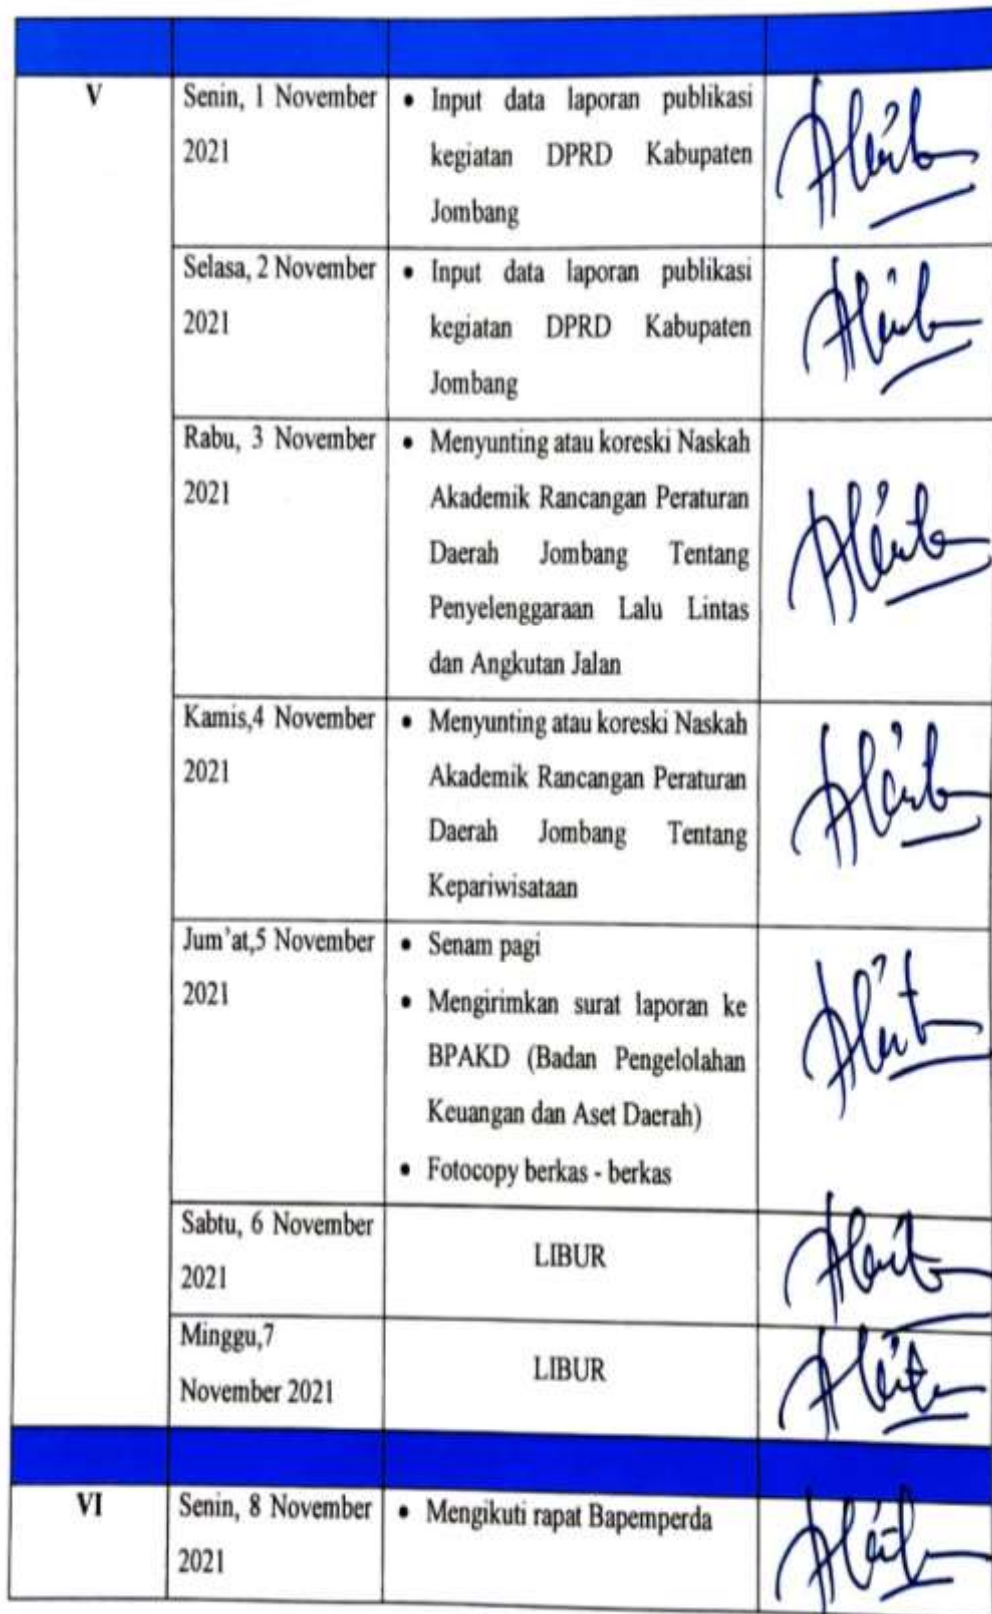 V
Senin, 1 November
2021
• Input data laporan publikasi
kegiatan DPRD Kabupaten
Jombang
Selasa, 2 November
2021
• Input data laporan publikasi
kegiatan DPRD Kabupaten
Jombang
Rabu, 3 November
2021
• Menyunting atau koreski Naskah
Akademik Rancangan Peraturan
Daerah Jombang Tentang
Penyelenggaraan Lalu Lintas
dan Angkutan Jalan
Kamis,4 November
2021
• Menyunting atau koreski Naskah
Akademik Rancangan Peraturan
Daerah Jombang Tentang
Kepariwisataan
Jum'at,5 November
2021
• Senam pagi
• Mengirimkan surat laporan ke
BPAKD (Badan Pengelolahan
Keuangan dan Aset Daerah)
• Fotocopy berkas - berkas
Sabtu, 6 November
2021
LIBUR
Minggu,7
November 2021
LIBUR
VI
Senin, 8 November
2021
• Mengikuti rapat Bapemperda